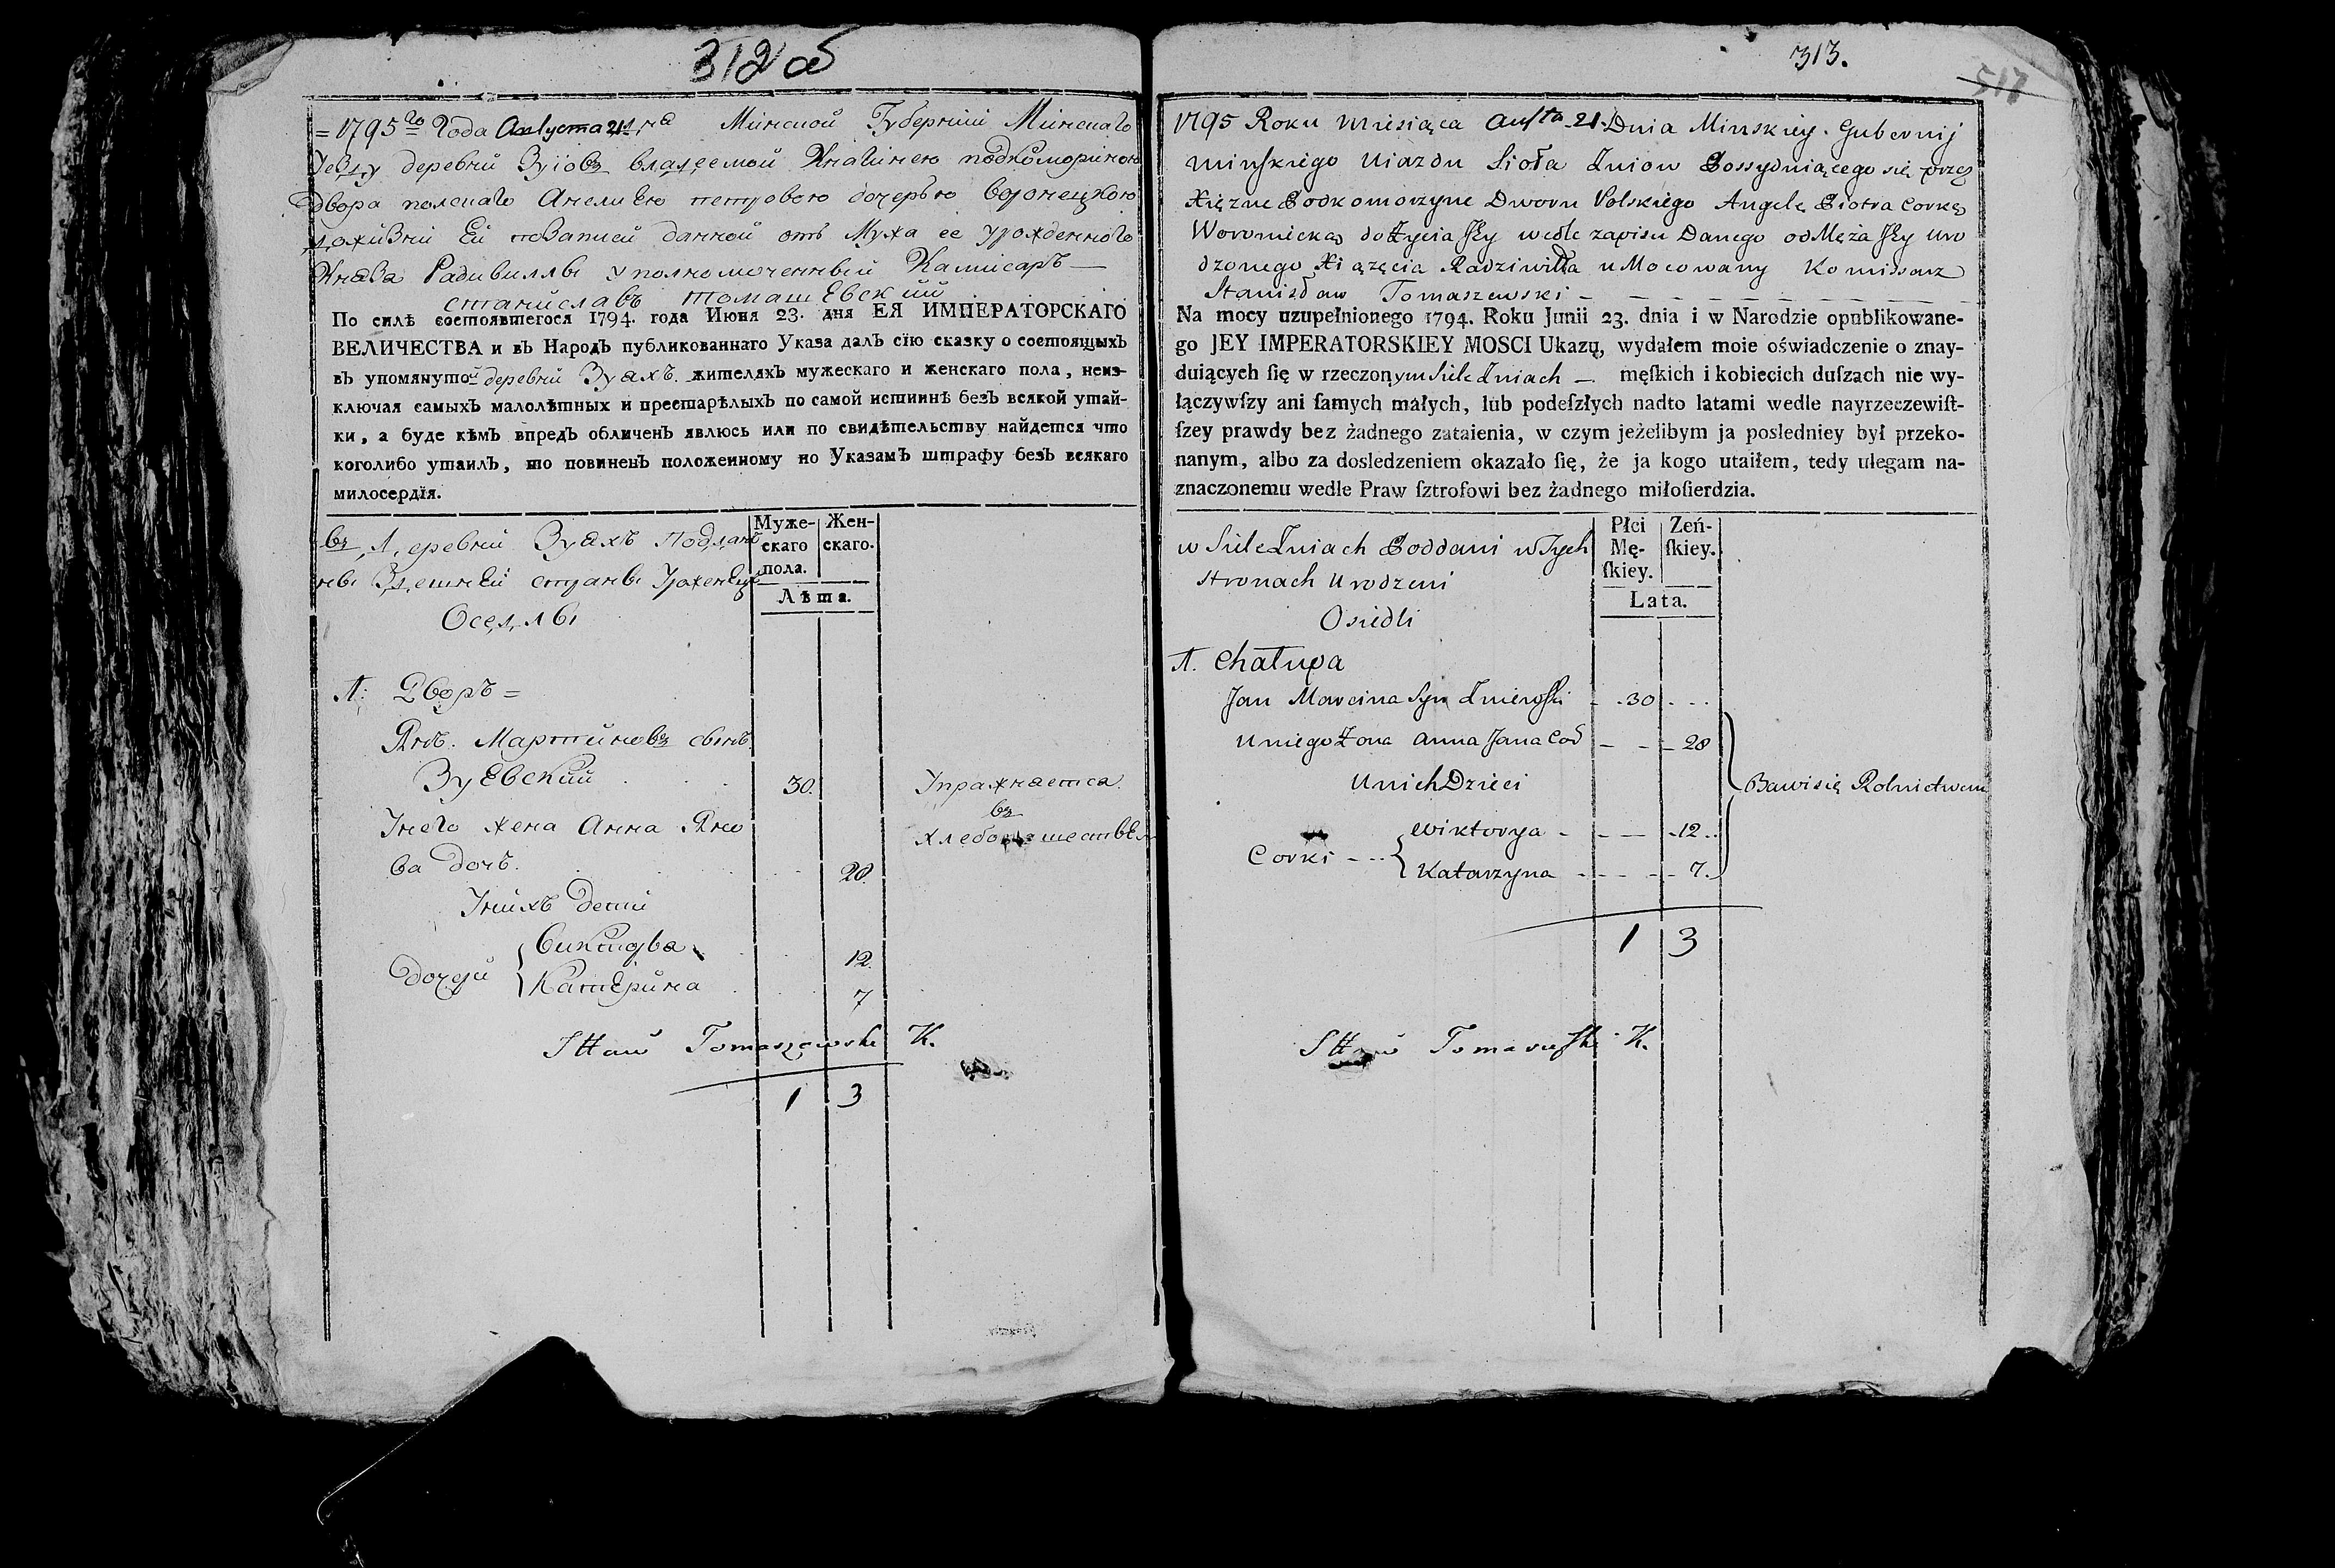 312 об
=1795го Года Августа 21 дня Минской Губерний Минскаго
Уезду деревни Зуіовъ владѣемой Княгинею подкомориною
двора полскаго Анелиею петровою дочерью воронецкою
дожизній Ей позаписи данной отъ Мужа ее урожденного
Князя Радивиллы уполномоченный Камисаръ —
станиславъ томашЕвский
По силѣ состоявшегося 1794. года Июня 23. дня ЕЯ ИМПЕРАТОРСКАГО
ВЕЛИЧЕСТВА и въ Народъ публикованнаго Указа далъ сїю сказку о состоящыхъ
въ упомянутой деревни Зуяхъ жителяхъ мужескаго и женскаго пола, неиз-
ключая самыхъ малолѣтных и престарѣлыхъ по самой истиннѣ безъ всякой утай-
ки, а буде кѣмъ впредъ обличенъ явлюсь или по свидѣтельству найдется что
коголибо утаилъ, то повиненъ положенному по Указамъ штрафу безъ всякаго
милосердїя.
въ Деревни Зуяхъ Поддан
ны Здешней страны Уроженцы
Оседлы
Муже-
скаго
пола.
Жен-
скаго.
Лѣта.
1: Дворъ =
Янъ Мартиновъ сынъ
Зуевский 30.
Унего жена Анна Яно
ва дочь. 28.
Унихъ дети
дочери { Викторя 12.
Катерина 7
Упражнается
въ
хлебопашестве
Sttaw Tomaszewski K.
1 3
313.
517
1795 Roku Miesiąca Austa 21. Dnia Minskiey Gubernij
minskiego Uiazdu Sioła Zuiow Possyduiącego się przez
Xiężne Podkomorzyne Dworu Polskiego Angelę Piotra Corkę
Woroniecką doŻycia Jey wedle zapisu Danego od Męża Jey uro
dzonego Xiążęcia Radziwiłła uMocowany Komissarz
Stanisław Tomaszewski
Na mocy uzupełnionego 1794. Roku Junii 23. dnia i w Narodzie opublikowane-
go JEY IMPERATORSKIEY MOSCI Ukazu, wydałem moie oświadczenie o znay-
duiących ſię w rzeczonym Siele Zuiach — męſkich i kobiecich duſzach nie wy-
łączywſzy ani ſamych małych, lub podeſzłych nadto latami wedle nayrzeczewiſt-
ſzey prawdy bez żadnego zataienia, w czym jeżelibym ja posledniey był przeko-
nanym, albo za dosledzeniem okazało ſię, że ja kogo utaiłem, tedy ulegam na-
znaczonemu wedle Praw ſztrofowi bez żadnego miłoſierdzia.
w Siele Zuiach Poddani w Tych
stronach Urodzeni
Osiedli
Płci
Mę-
ſkiey.
Zeń-
ſkiey.
Lata.
1. Chałupa
Jan Marcina Syn Zuiewski 30
Uniego Żona Anna Jana Cod 28
Unich Dzieci
Bawi się Rolnictwem
Corki { Wiktorya 12
Katarzyna 7.
1 3
Sttaw Tomaszewski K.